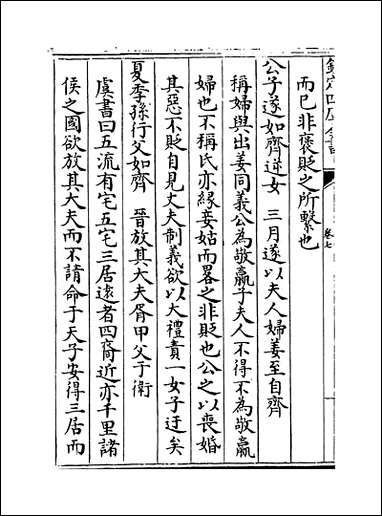 欽定四庫全書
卷七
而已非褒貶之所繫也
公子遂如齊逆女　三月遂以夫人婦姜至自齊
稱婦與出姜同義公為敬嬴子夫人不得不為敬嬴
婦也不稱氏亦緣妾姑而畧之非貶也公之以喪婚
其惡不貶自見丈夫制義欲以大禮責一女子迂矣
夏季孫行父如齊　晉放其大夫胥甲父于衛
虞書曰五流有宅五宅三居遠者四裔近亦千里諸
侯之國欲放其大夫而不請命于天子安得三居而